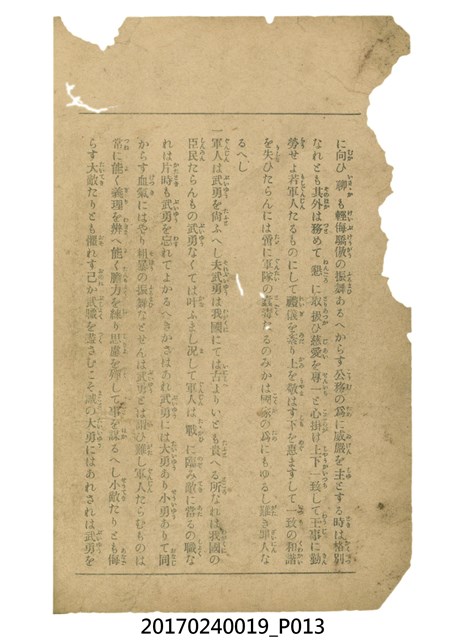 に向ひ聊も輕侮驕傲の振舞あるへからす公務の爲に威嚴を主とする時は格別
なれとも其外は務めて懇に取扱ひ慈愛を專一と心掛け上下一致して王事に勤
勞せよ若軍人たるものにして禮儀を紊り上を敬はす下を惠ますして一致の和諧
を失ひたらんには啻に軍隊の蠧毒たるのみかは國家の爲にもゆるし難き罪人な
るへし
一軍人は武勇を尙ふへし夫武勇は我國にては古よりいとも貴へる所なれは我國の
臣民たらんもの武勇なくては叶ふまし況して軍人は戰に臨み敵に當るの職な
れは片時も武勇を忘れてよかるへきかさはあれ武勇には大勇あり小勇ありて同
からす血氣にはやり粗暴の振舞なとせんは武勇とは謂ひ難し軍人たらむものは
常に能く義理を辨へ能く膽力を練り思慮を殫して事を謀るへし小敵たりとも侮
らす大敵たりとも懼れす己か武職を盡さむこそ誠の大勇にはあれされは武勇を
20170240019_P013